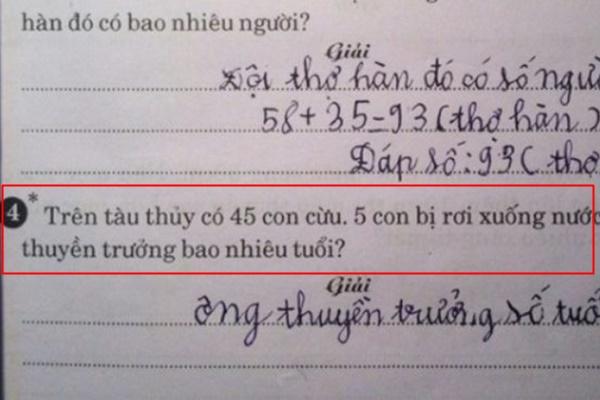 hàn đó có bao nhiêu người?
Giải
Đội thợ hàn đó có số
58+35=93(thợ hàn)
Đáp số:93(thợ
4* Trên tàu thủy có 45 con cừu. 5 con bị rơi xuống nước
thuyền trưởng bao nhiêu tuổi?
Giải
Ông thuyền trưởng số